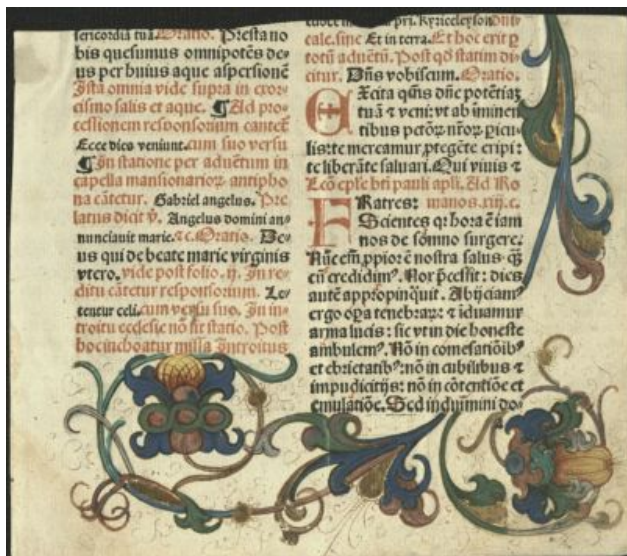 sericordiā tuā. Oratio. Presta no
bis quesumus omnipotēs de-
us per huius aque aspersionē
Ista omnia vide supra in exor-
cismo salis et aque. ¶ Ad pro-
cessionem responsorium cantet̄
Ecce dies veniunt. cum suo versu
¶ In statione per aduētum in
capella mansionarioꝝ antipho
na cātetur. Gabriel angelus. Pre
latus dicit ꝟ. Angelus domini an-
nunciauit marie. ⁊ c. Oratio. De-
us qui de beate marie virginis
vtero. vide post folio. ij. In re-
ditu cātetur responsorium. Le-
tentur celi. cum versu suo. In in-
troitu ecclesie nō fit statio. Post
hoc inchoatur missa Introitus
pri. Kyrieleyson
cale. sine Et in terra. Et hoc erit ꝑ
totū aduētū. Post qď statim di-
citur. Dn̄s vobiscum. Oratio.
EXcita qs̄ms dn̄e potētiaꝫ
tuā ⁊ veni: vt ab iminen
tibus petōꝝ nr̄oꝝ ꝑicu-
lis: te mereamur ꝓtegēte eripi:
te liberāte saluari. Qui viuis ⁊
Lcō eplē bti pauli apli. Ad Ro
FRatres: manos. xiij. c.
Scientes qꝛ hora ē iam
nos de somno surgere.
Nūc em̄ ꝓpior ē nostra salus qꝫ̄
cū credidimꝰ. Nox p̄cessit: dies
autē appropinq̄uit. Abijciamꝰ
ergo oꝑa tenebraꝝ: ⁊ iduamur
arma lucis: sic vt in die honeste
ambulemꝰ. Nō in comesatiōibꝰ
et ebrietatibꝰ: nō in cubilibus ⁊
impudicitijs: nō in cōtentiōe et
emulatiōe. Sed induīmini do-